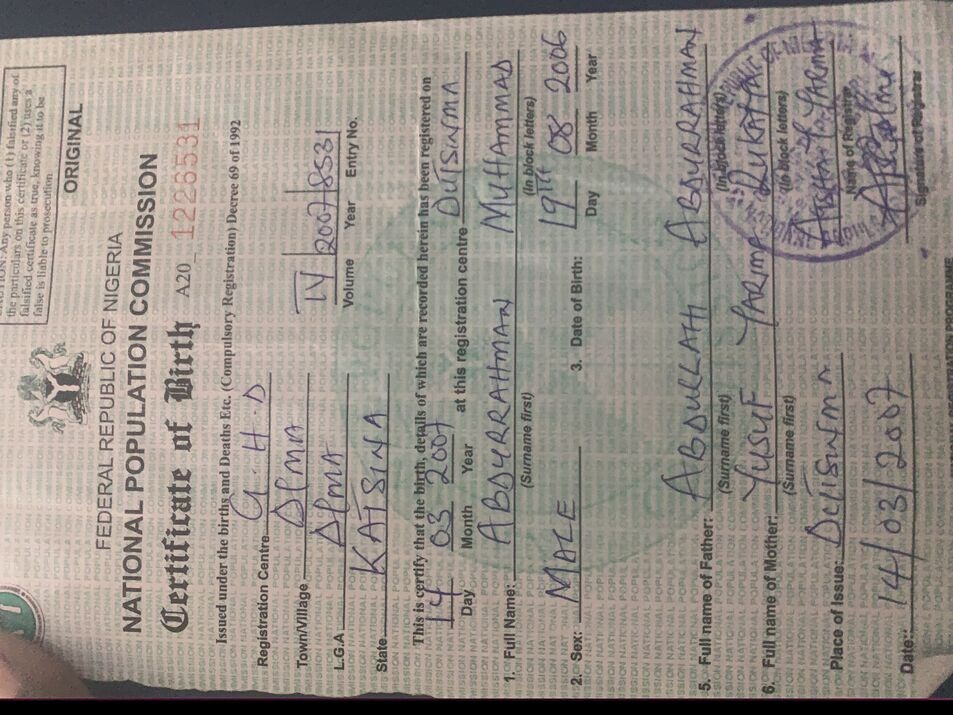 CAUTION: Any person who (1) falsified any of
the particulars on this certificate or (2) uses a
falsified certificate as true, knowing it to be
false is liable to prosecution
ORIGINAL
FEDERAL REPUBLIC OF NIGERIA
NATIONAL POPULATION COMMISSION
Certificate of Birth A20 1226531
Issued under the births and Deaths Etc. (Compulsory Registration) Decree 69 of 1992
Registration Centre G.H.D
Town/Village DTMA
L.G.A DTMA
State KATSINA
IV 2007 8531
Volume Year Entry No.
This is certify that the birth, details of which are recorded herein has been registered on
14 03 2007 at this registration centre DUTSINMA
Day Month Year
1. Full Name: ABDURRAHMAN MUHAMMAD
(Surname first) (In block letters)
2. Sex: MALE 3. Date of Birth: 19TH 08 2006
Day Month Year
5. Full name of Father: ABDULLAHI ABDURRAHMAN
(Surname first) (In block letters)
6. Full name of Mother: YUSUF YARIMA RUKAIYA
(Surname first) (In block letters)
Place of Issue: Dutsinma
Name of Registrar
Date: 14/03/2007
Signature of Registrar